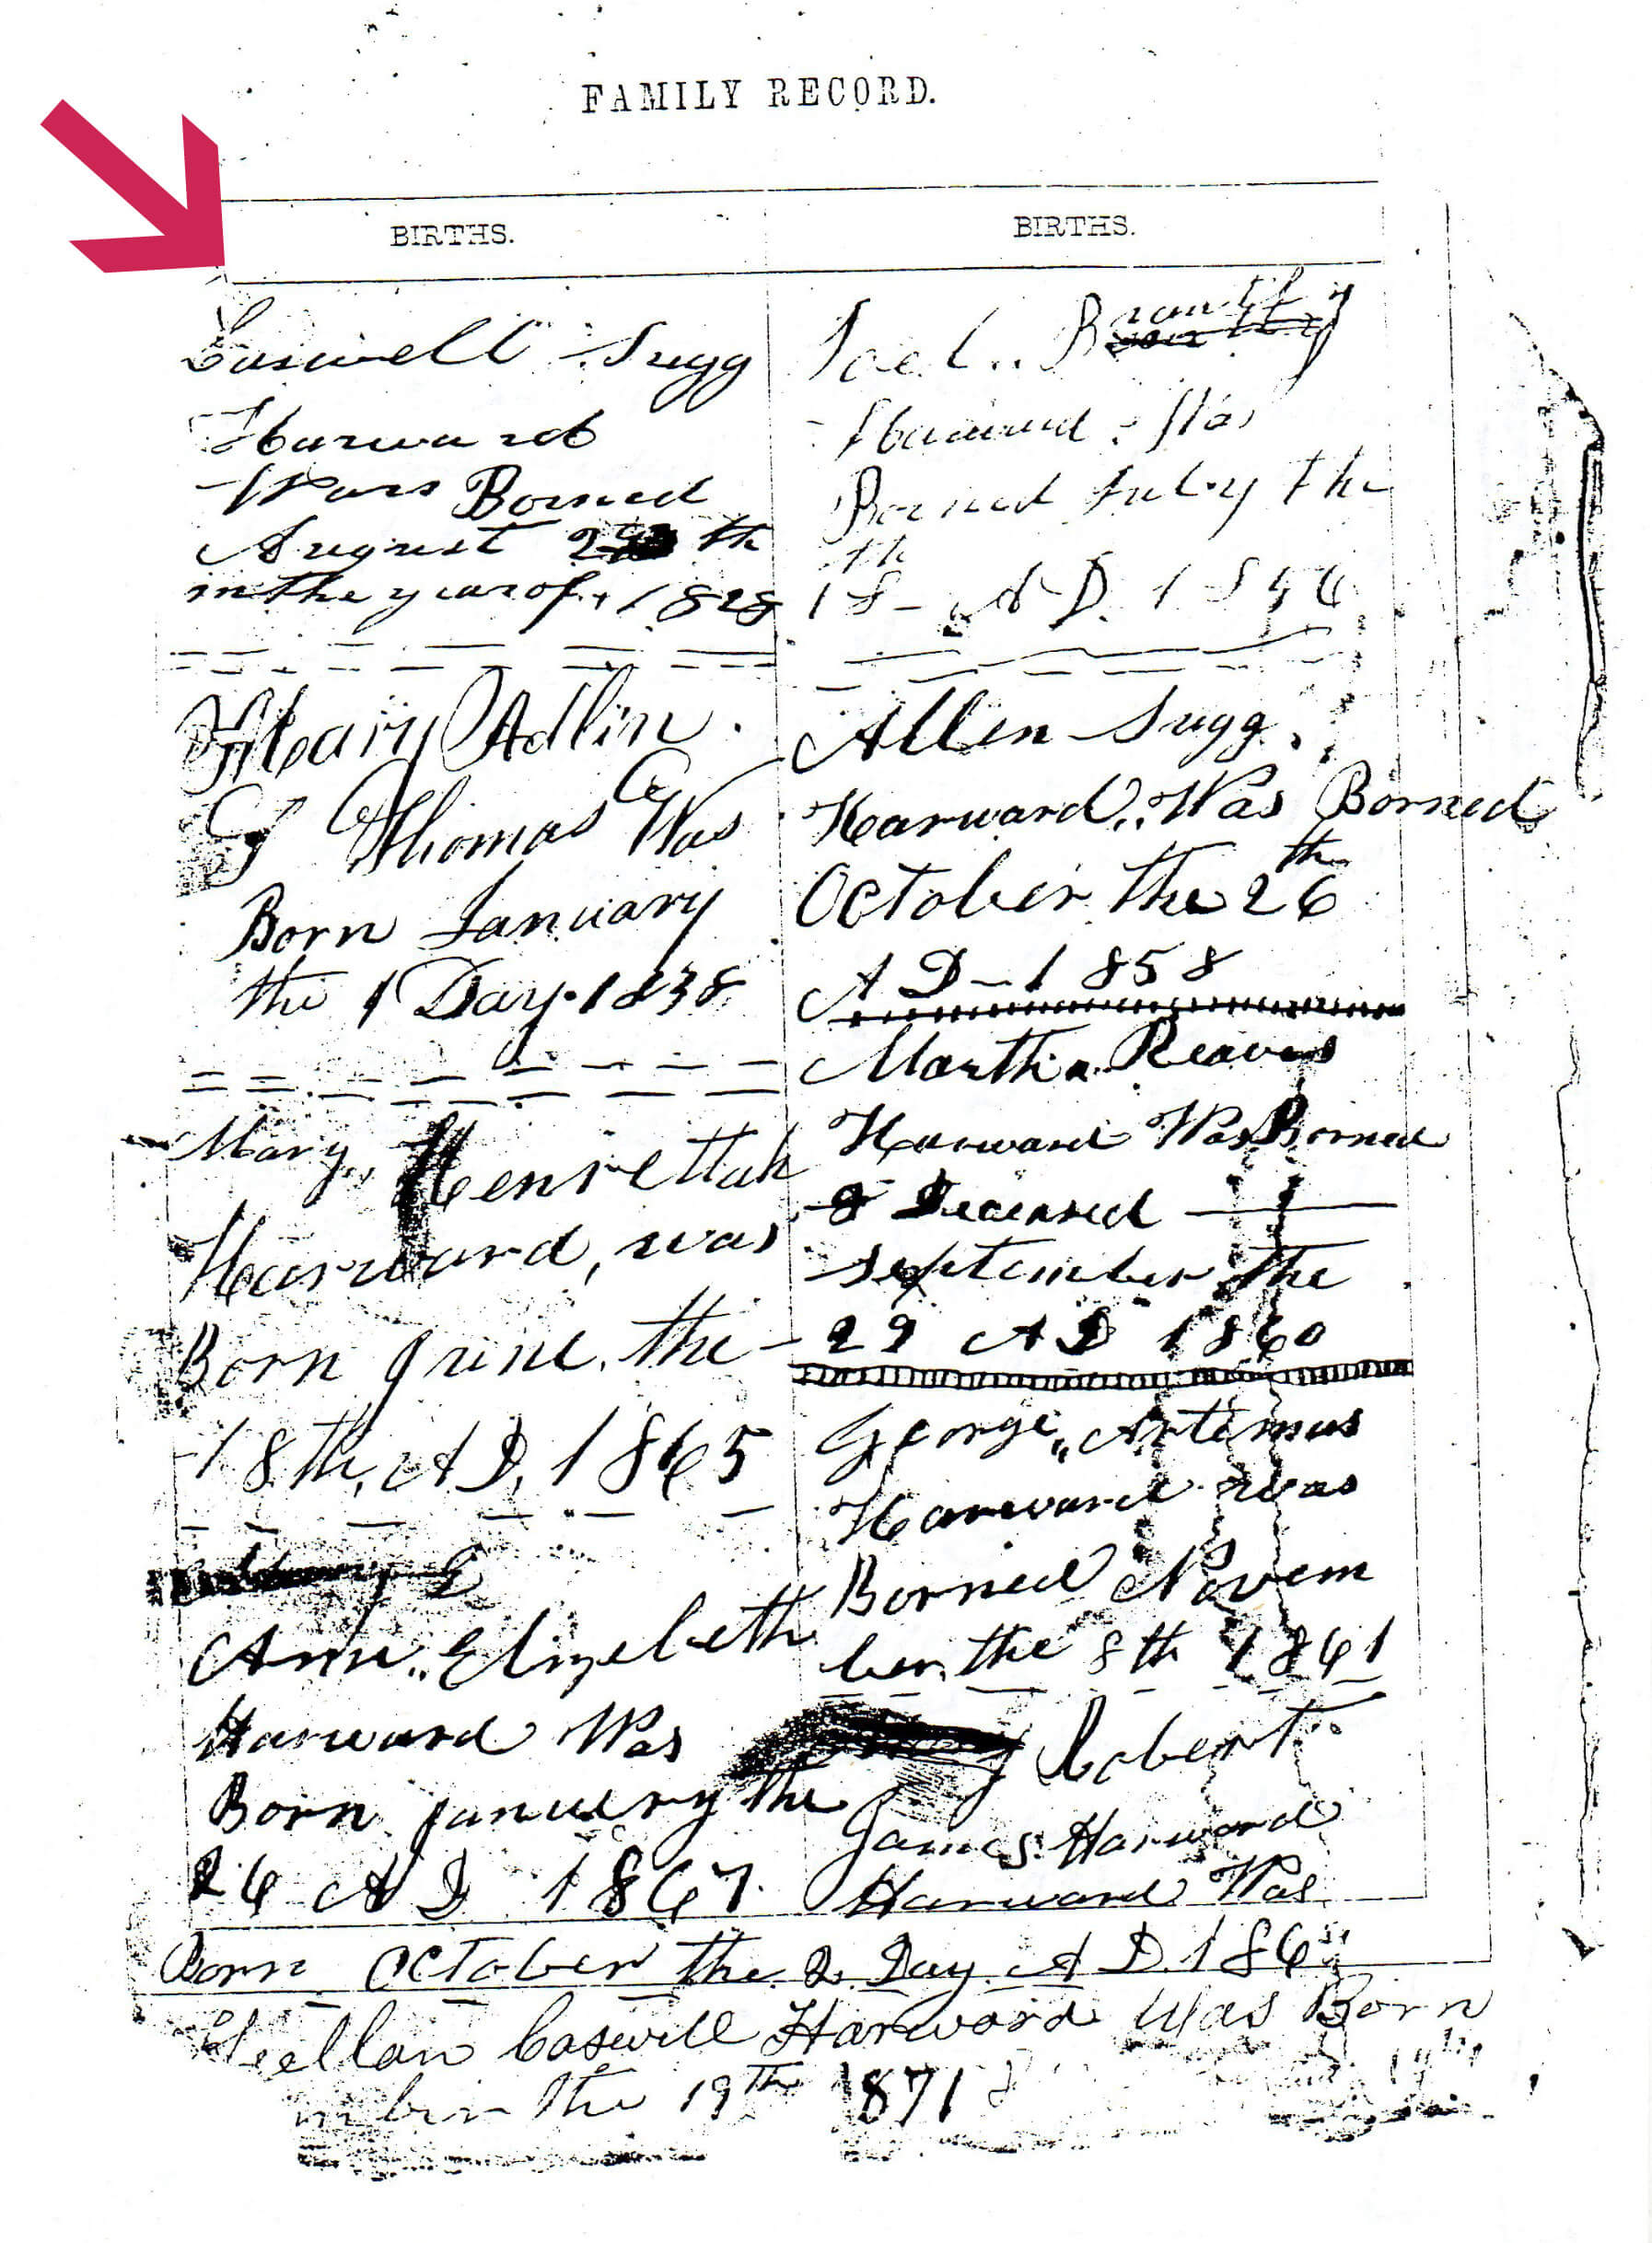 FAMILY RECORD.
BIRTHS.
Caswell Sugg
Harward
Was Borned
August th
in the year of 1828
Mary Adlin
G Thomas Was
Born January
the 1 Day 1838
Mary Henrettah
Harward, was
Born June, the
18th, AD, 1865
Ann Elizebeth
Harward Was
Born January the
26 AD 1867
BIRTHS.
Joel Brantly
Harward Was
Borned July the
th
18 AD. 1856
Allen Sugg
Harward, Was Borned
th
October the 26
AD 1858
Martha Reaves
Harward Was Borned
& Deceased
September the
29 AD 1860
George Artemus
Harward was
Borned Novem
ber, the 8th 1861
Robert
James Harward
Harward Was
Born October the 2 Day AD 186
Caswell Harward Was Born
the 19th 1871